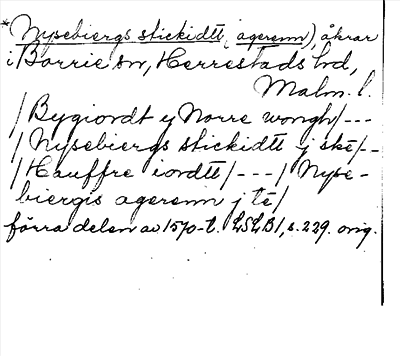 *Nysebiergs stickidtt, agerenn), åkrar
i Borrie sn, Herrestads hd,
Malm. l.
/Bygiordt y Norre wongh/---
/Nysebiergs stickidtt j ske/--
/Hauffre iordtt/---/Nyse-
biergis agerenn j te/
förra delen av 1570-t. LSLB1, s. 229. orig.